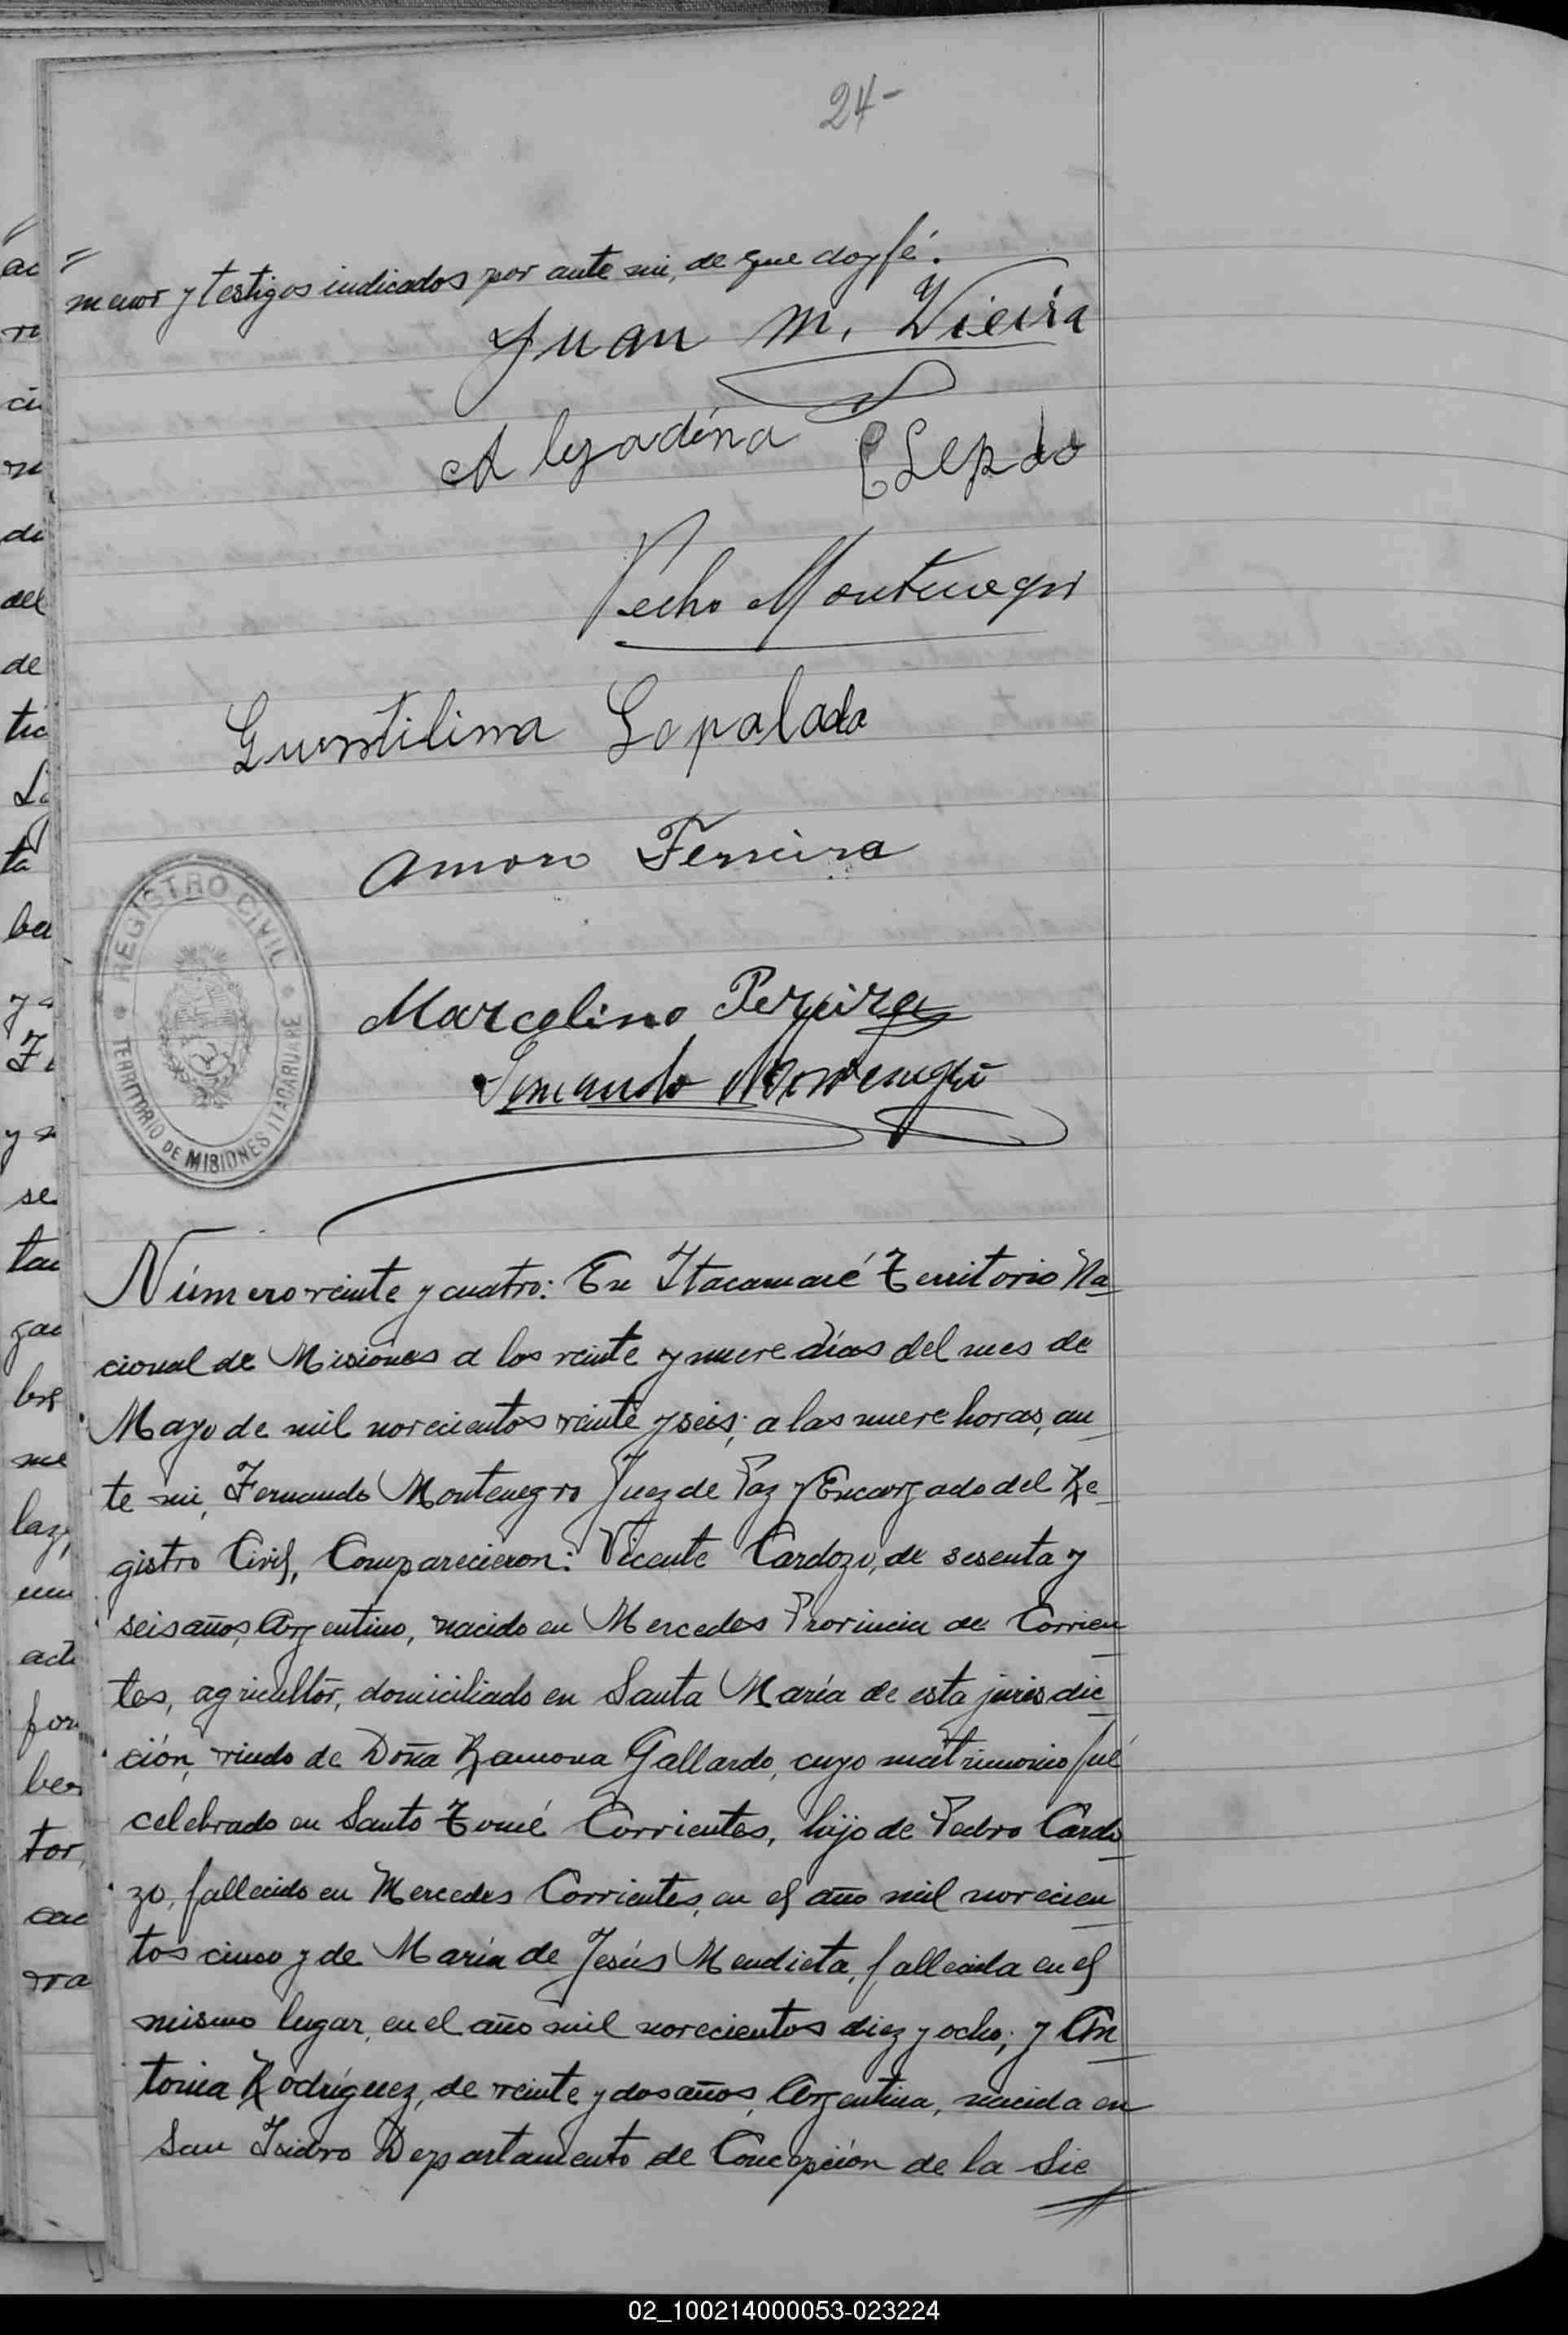 24-
menor y testigos indicados por ante mi, de que doy fé.
Juan M. Vieira
Pedro Montenegro
Amaro Ferreira
REGISTRO CIVIL
TERRITORIO DE MISIONES ITACARUARE
Marcelino Pereira
Fernando Montenegro
Número veinte y cuatro: En Itacaruaré Territorio Na
cional de Misiones a los veinte y nueve días del mes de
Mayo de mil novecientos veinte y seis; a las nueve horas, an
te mi, Fernando Montenegro Juez de Paz y Encargado del Re
gistro Civil, Comparecieron: Vicente Cardozo, de sesenta y
seis años, Argentino, nacido en Mercedes Provincia de Corrien
tes, agricultor, domiciliado en Santa María de esta jurisdic
ción, viudo de Doña Ramona Gallardo, cuyo matrimonio fué
celebrado en Santo Tomé Corrientes, hijo de Pedro Cardo
zo, fallecido en Mercedes Corrientes, en el año mil novecien
tos cinco y de María de Jesús Mendieta, fallecida en el
mismo lugar, en el año mil novecientos diez y ocho; y An
tonia Rodríguez, de veinte y dos años, Argentina, nacida en
San Isidro Departamento de Concepción de la Sie
02_100214000053-023224